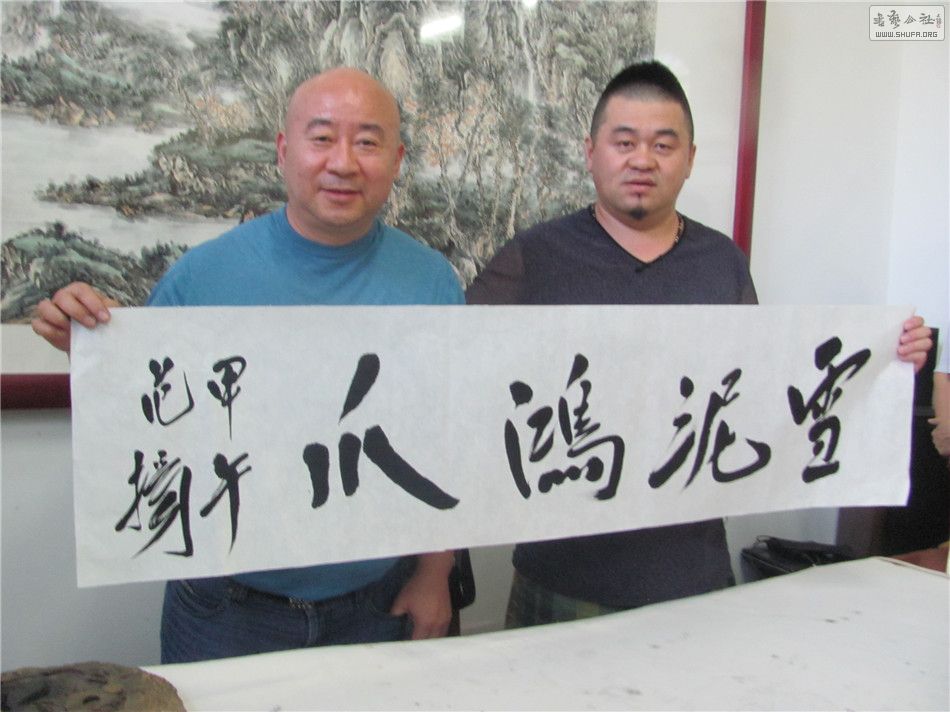 雪泥鴻爪
甲午
范揚
書藝公社
WWW.SHUFA.ORG